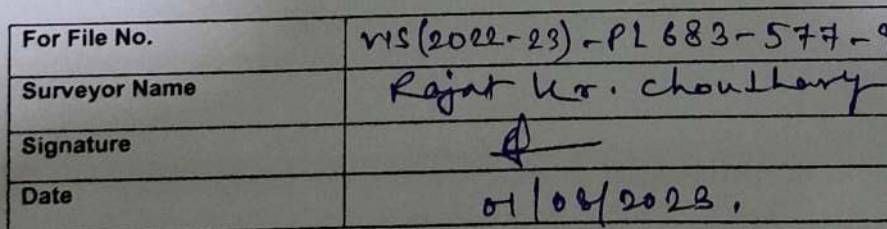 For File No. VIS(2022-23)-PL683-577-9
Surveyor Name Rajat Kr. Choudhary
Signature
Date 01/03/2023.